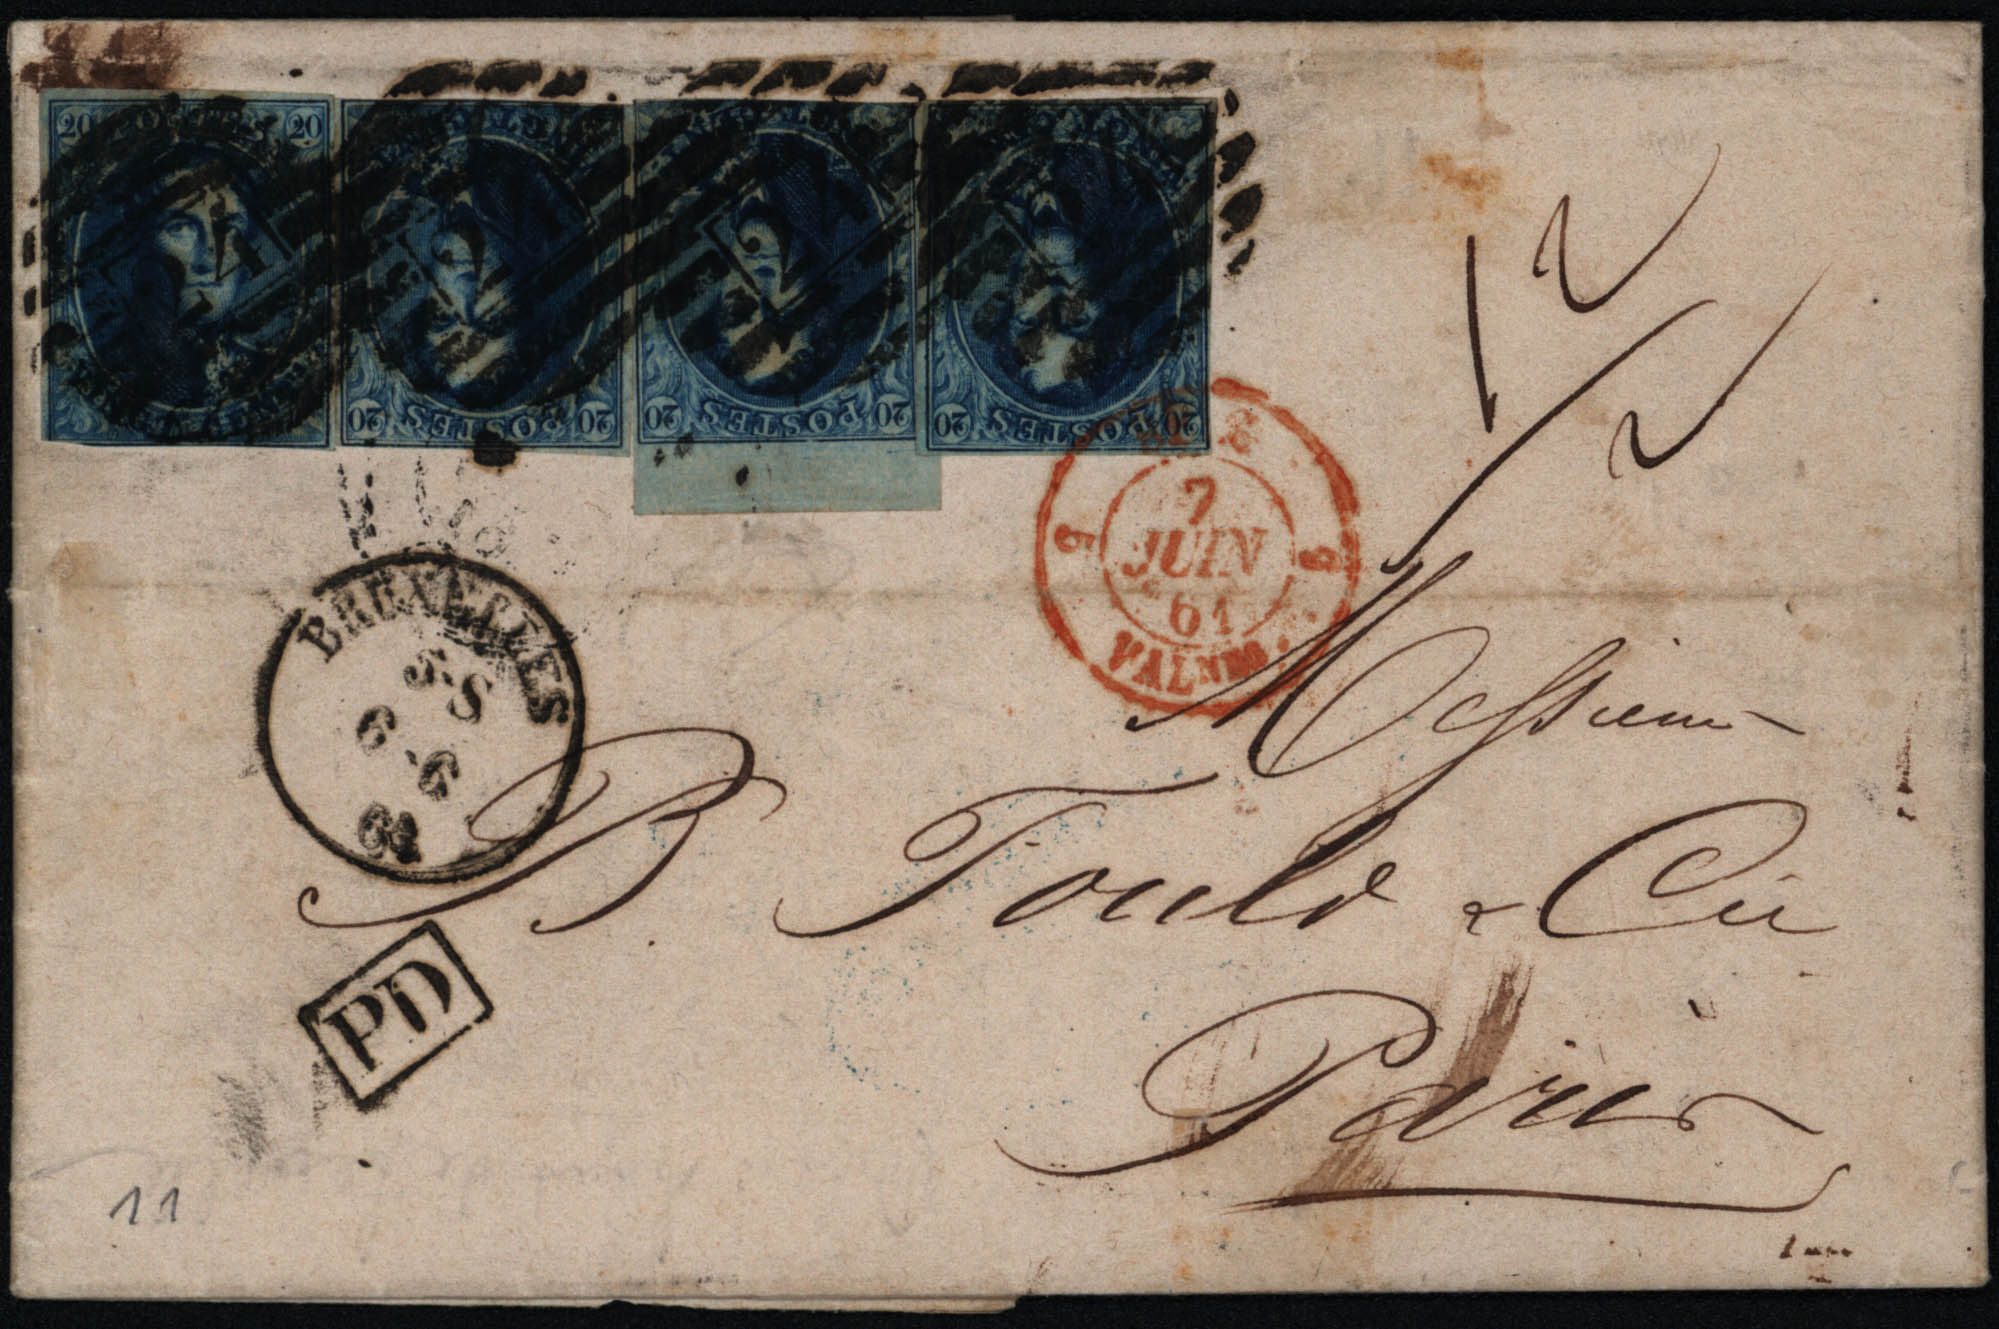 20 POSTES 20
24
2
2
20 POSTES 20
20 POSTES 20
20 POSTES 20
7
JUIN
61
VALNES
BRUXELLES
PD
Messieurs
B. Fould & Cie
Paris
11